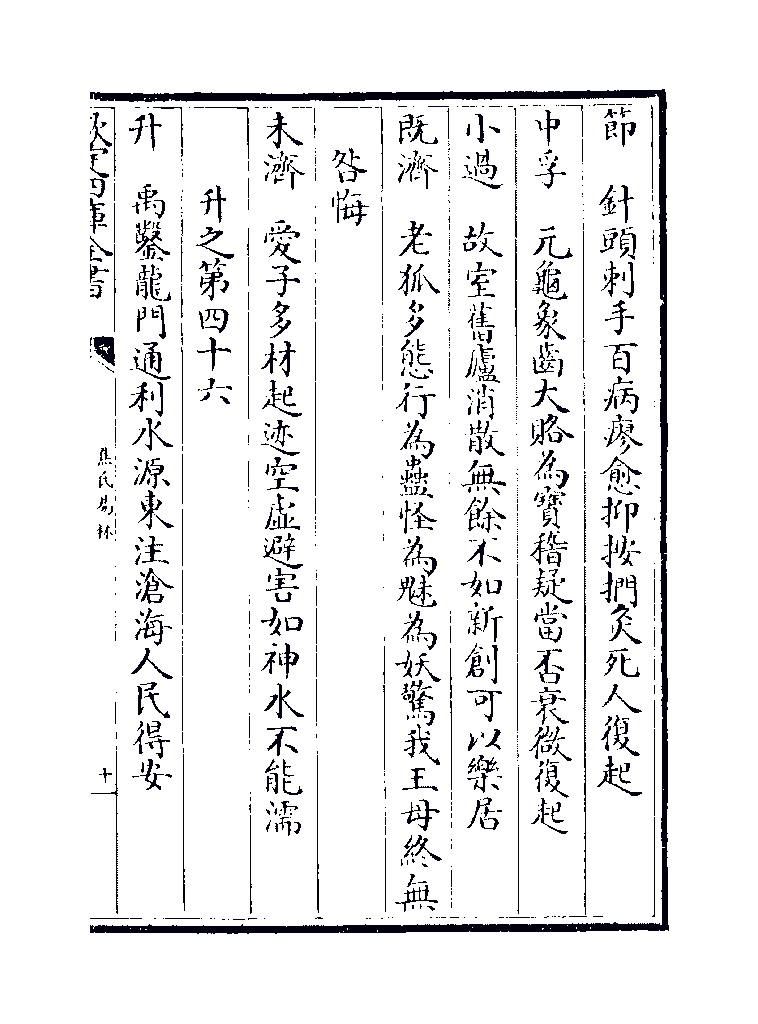 節　針頭刺手百病瘳愈抑按捫灸死人復起
中孚　元龜象齒大賂為寶稽疑當否衰微復起
小過　故室舊廬消散無餘不如新創可以樂居
既濟　老狐多態行為蠱怪為魅為妖驚我王母終無
咎悔
未濟　愛子多材起迹空虛避害如神水不能濡
升之第四十六
升　禹鑿龍門通利水源東注滄海人民得安
欽定四庫全書
焦氏易林
十